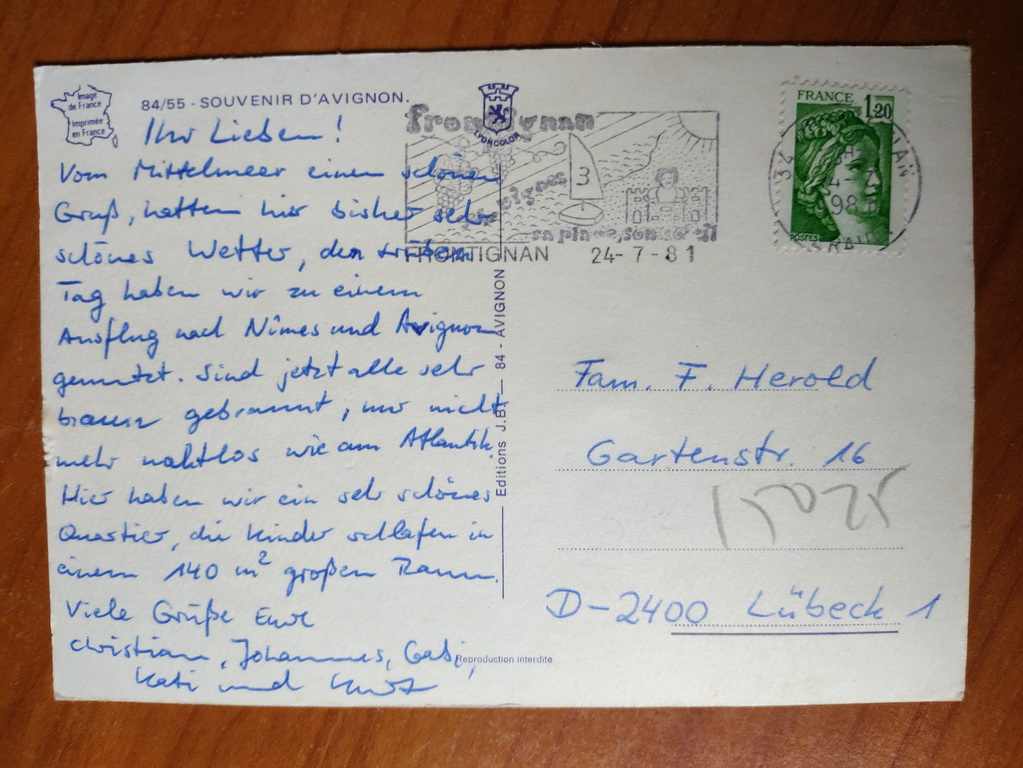 Image
de France
Imprimée
en France
84/55 - SOUVENIR D'AVIGNON.
LYONCOLOR
Ihr Lieben!
Vom Mittelmeer einen schönen
Gruß, hatten hier bisher sehr
schönes Wetter, den trüben
Tag haben wir zu einem
Ausflug nach Nîmes und Avignon
genutzt. Sind jetzt alle sehr
braun gebrannt, nur nicht
mehr nahtlos wie am Atlantik.
Hier haben wir ein sehr schönes
Quartier, die Kinder schlafen in
einem 140 m² großen Raum.
Viele Grüße Eure
Christian, Johannes, Gabi,
Kati und
Editions J.B. — 84 - AVIGNON
Reproduction interdite
frontignan
3
sa plage, son soleil
FRONTIGNAN 24-7-81
FRANCE 1,20
POSTES
34
Fam. F. Herold
Gartenstr. 16
D-2400 Lübeck 1